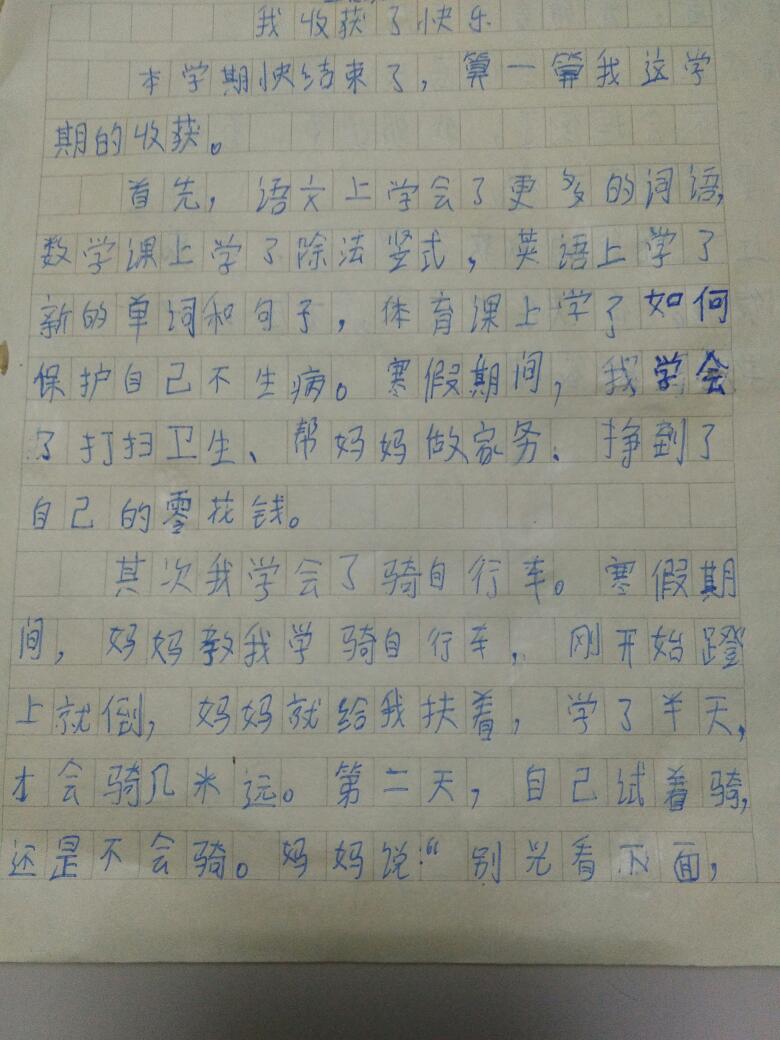 我收获了快乐
本学期快结束了，算一算我这学
期的收获。
首先，语文上学会了更多的词语，
数学课上学了除法竖式，英语上学了
新的单词和句子，体育课上学了如何
保护自己不生病。寒假期间，我学会
了打扫卫生、帮妈妈做家务、挣到了
自己的零花钱。
其次我学会了骑自行车。寒假期
间，妈妈教我学骑自行车，刚开始蹬
上就倒，妈妈就给我扶着，学了半天，
才会骑几米远。第二天，自己试着骑，
还是不会骑。妈妈说：“别光看下面，